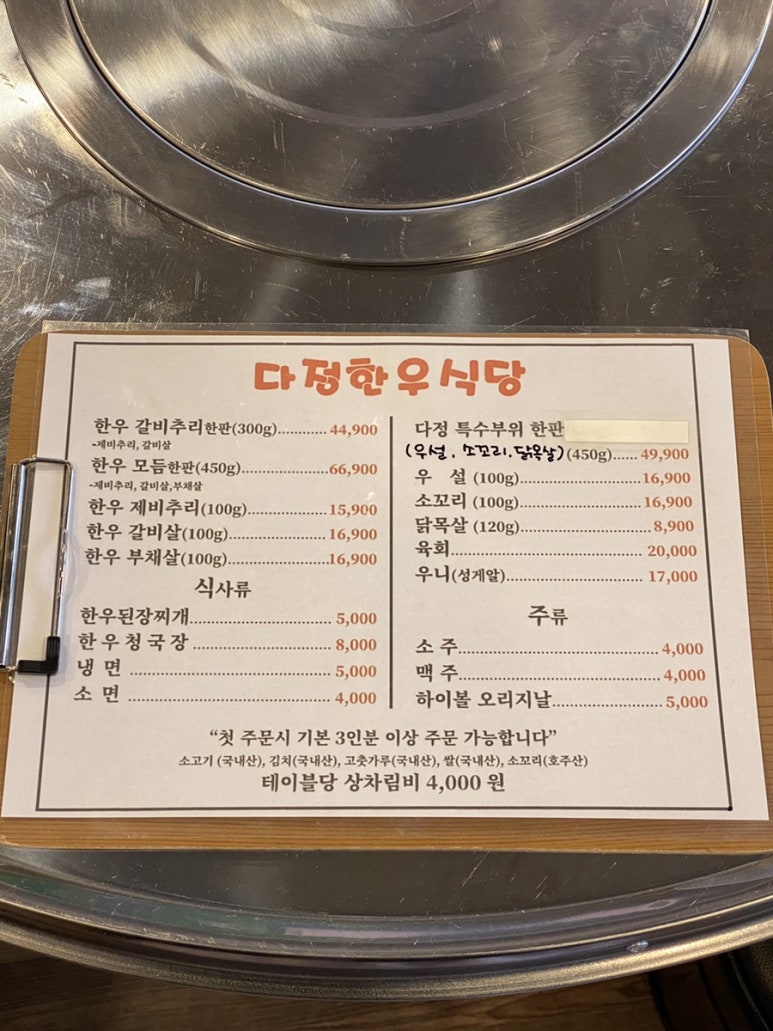 다정한우식당
한우 갈비추리한판(300g)............ 44,900
-제비추리, 갈비살
한우 모듬한판(450g)..................66,900
-제비추리, 갈비살,부채살
한우 제비추리(100g)................. 15,900
한우 갈비살(100g)..................... 16,900
한우 부채살(100g).....................16,900
식사류
한우된장찌개............................. 5,000
한우청국장 ............................ 8,000
냉 면 ........................................ 5,000
소 면 ........................................ 4,000
다정 특수부위 한판
(우설. 소꼬리. 닭목살) (450g)...... 49,900
우 설 (100g)............................. 16,900
소꼬리 (100g)............................. 16,900
닭목살 (120g)............................... 8,900
육회............................................. 20,000
우니(성게알)................................. 17,000
주류
소 주.............................................. 4,000
맥 주.............................................. 4,000
하이볼 오리지날........................... 5,000
“첫 주문시 기본 3인분 이상 주문 가능합니다”
소고기 (국내산), 김치(국내산), 고춧가루(국내산), 쌀(국내산), 소꼬리(호주산)
테이블당 상차림비 4,000 원